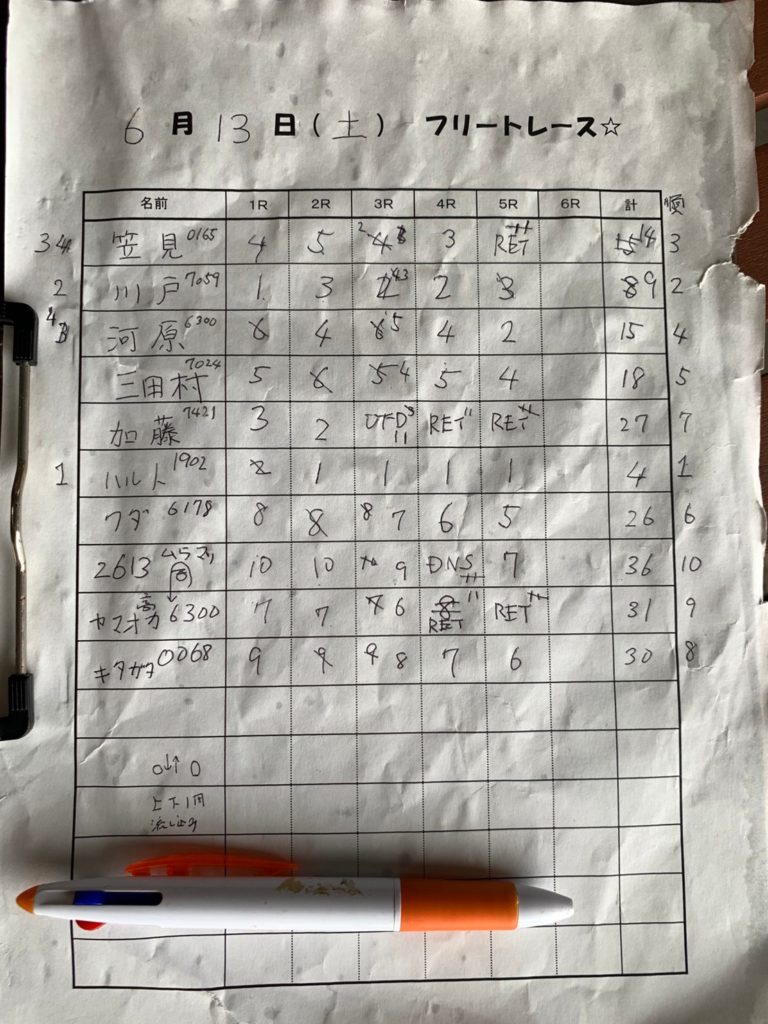 6 月 13 日 ( 土 ) フリートレース☆
名前 1R 2R 3R 4R 5R 6R 計 順
3 4 笠見 0165 4 5 2 4 3 RET 14 3
2 川戸 7059 1 3 2 3 89 2
4 河原 6300 6 4 6 5 4 2 15 4
三田村 7024 5 6 5 4 5 4 18 5
加藤 7421 3 2 UFD 11 RET 11 RET 11 27 7
1 ハルト 1902 2 1 1 1 1 4 1
ワダ 6178 8 8 8 7 6 5 26 6
2613 ムラマツ 10 10 9 DNS 11 7 36 10
ヤスオカ 高 6300 7 7 7 6 8 RET 11 RET 11 31 9
キタガタ 0068 9 9 9 8 7 6 30 8
0↓↑0
上下1周